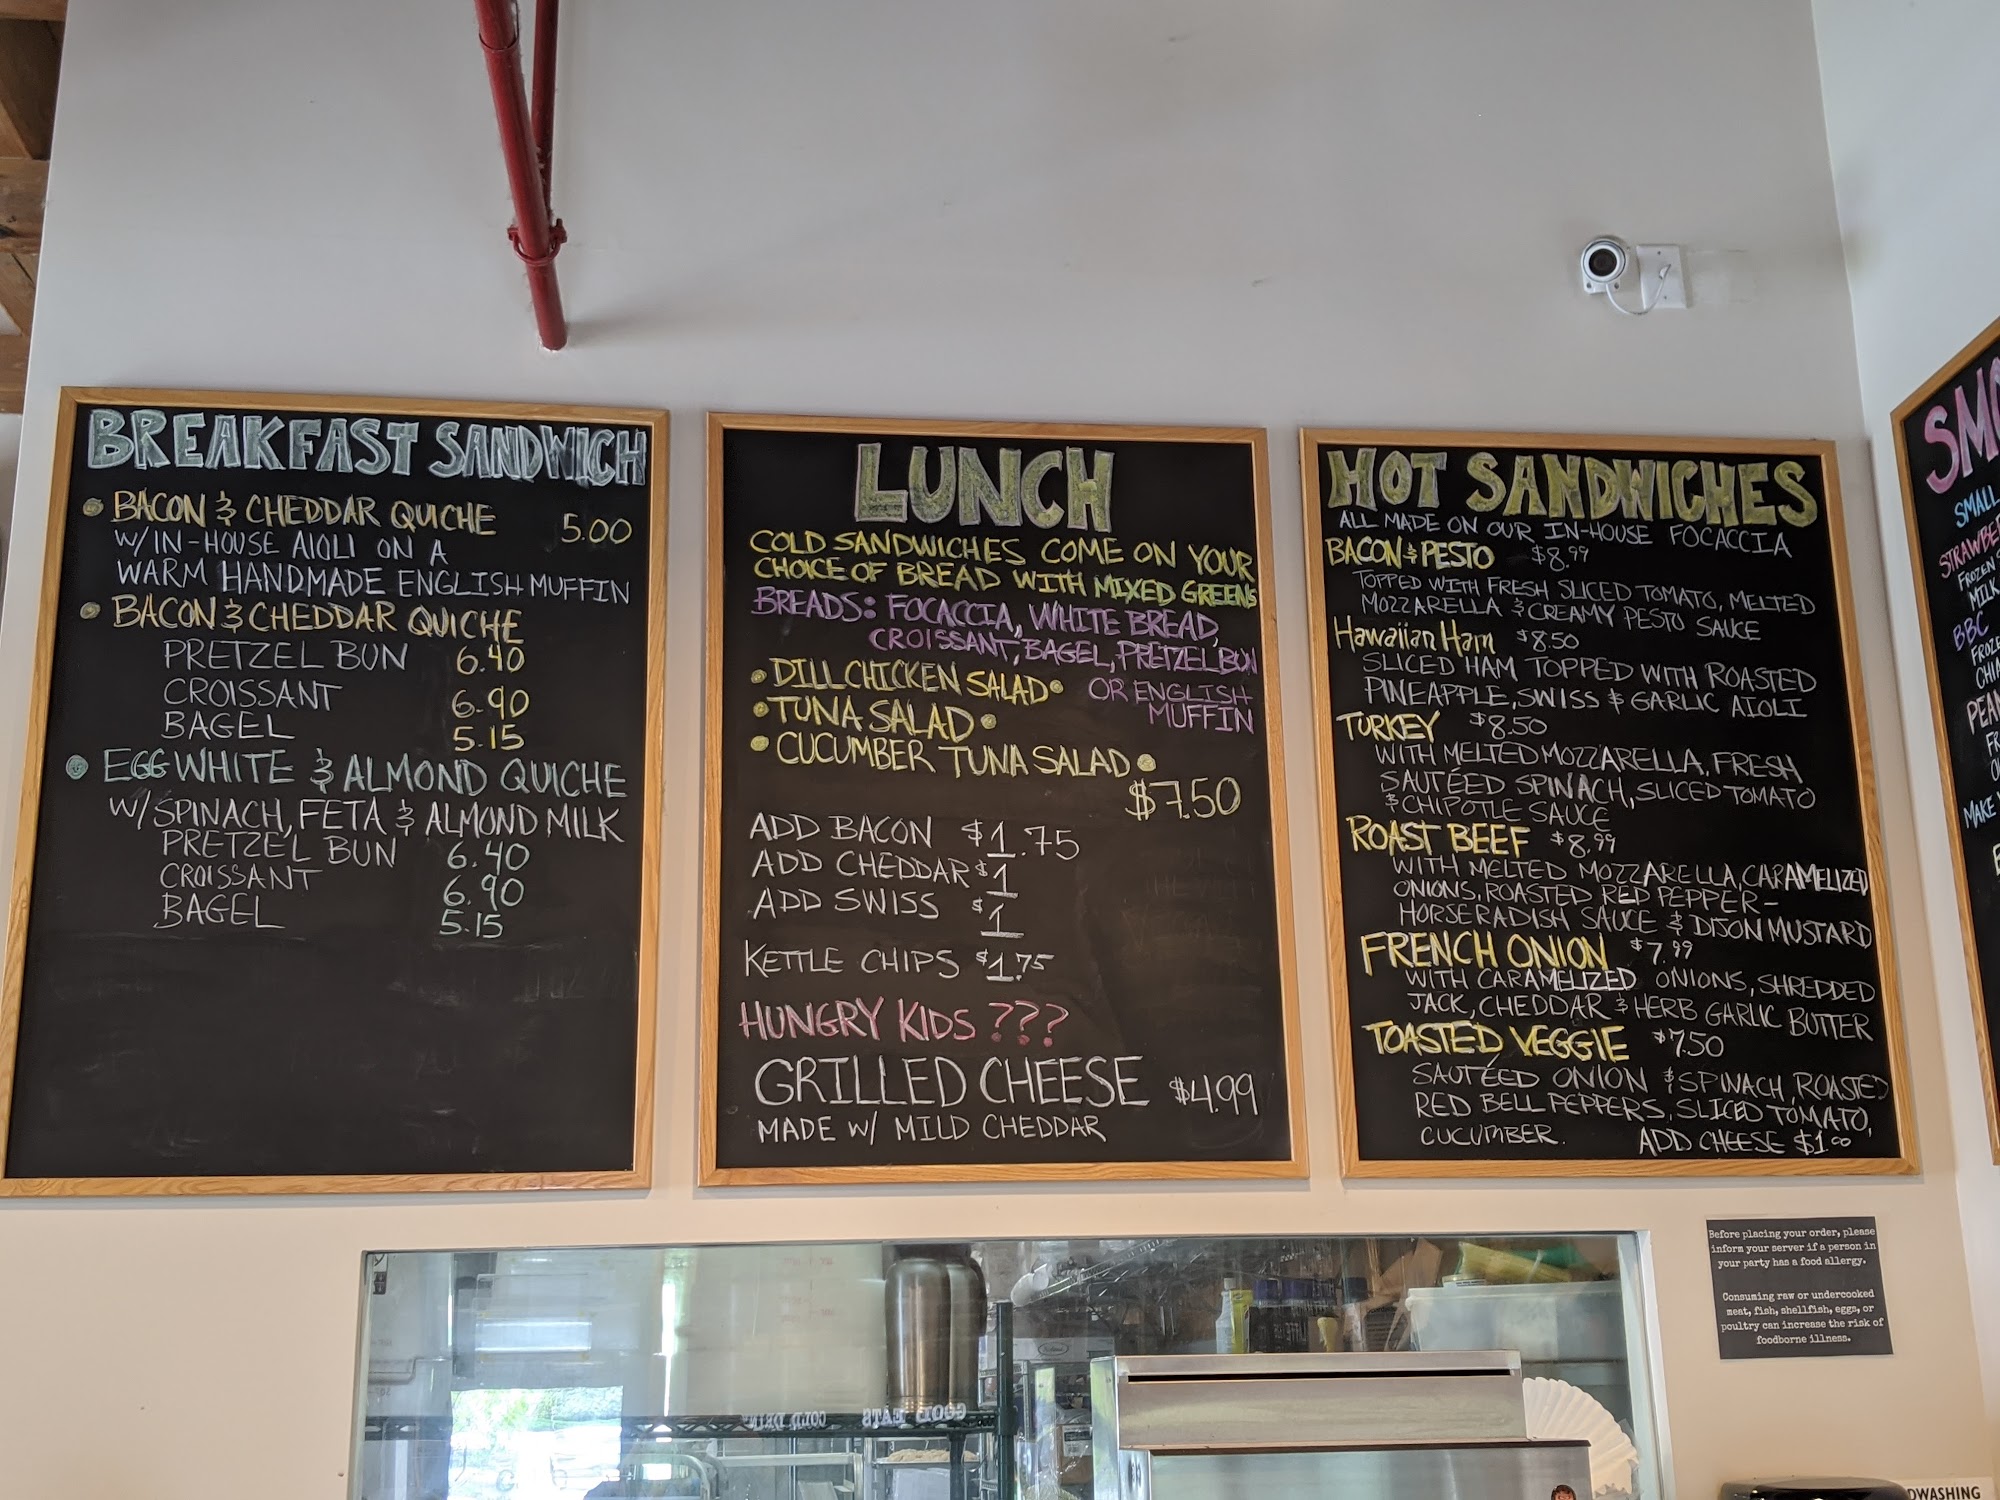 BREAKFAST SANDWICH
BACON & CHEDDAR QUICHE 5.00
W/IN-HOUSE AIOLI ON A
WARM HANDMADE ENGLISH MUFFIN
BACON & CHEDDAR QUICHE
PRETZEL BUN 6.40
CROISSANT 6.90
BAGEL 5.15
EGG WHITE & ALMOND QUICHE
W/SPINACH, FETA & ALMOND MILK
PRETZEL BUN 6.40
CROISSANT 6.90
BAGEL 5.15
LUNCH
COLD SANDWICHES COME ON YOUR
CHOICE OF BREAD WITH MIXED GREENS
BREADS: FOCACCIA, WHITE BREAD,
CROISSANT, BAGEL, PRETZEL BUN
OR ENGLISH
MUFFIN
DILL CHICKEN SALAD
TUNA SALAD
CUCUMBER TUNA SALAD
$7.50
ADD BACON $1.75
ADD CHEDDAR $1
ADD SWISS $1
KETTLE CHIPS $1.75
HUNGRY KIDS ???
GRILLED CHEESE $4.99
MADE W/ MILD CHEDDAR
HOT SANDWICHES
ALL MADE ON OUR IN-HOUSE FOCACCIA
BACON & PESTO $8.99
TOPPED WITH FRESH SLICED TOMATO, MELTED
MOZZARELLA & CREAMY PESTO SAUCE
Hawaiian Ham $8.50
SLICED HAM TOPPED WITH ROASTED
PINEAPPLE, SWISS & GARLIC AIOLI
TURKEY $8.50
WITH MELTED MOZZARELLA, FRESH
SAUTÉED SPINACH, SLICED TOMATO
& CHIPOTLE SAUCE
ROAST BEEF $8.99
WITH MELTED MOZZARELLA, CARAMELIZED
ONIONS, ROASTED RED PEPPER-
HORSERADISH SAUCE & DIJON MUSTARD
FRENCH ONION $7.99
WITH CARAMELIZED ONIONS, SHREDDED
JACK, CHEDDAR & HERB GARLIC BUTTER
TOASTED VEGGIE $7.50
SAUTÉED ONION & SPINACH, ROASTED
RED BELL PEPPERS, SLICED TOMATO,
CUCUMBER. ADD CHEESE $1.00
SMO
SMALL
STRAWBE
FROZEN S
MILK
BBC
FROZE
CHIA
PEAN
FR
MAKE
Before placing your order, please
inform your server if a person in
your party has a food allergy.
Consuming raw or undercooked
meat, fish, shellfish, eggs, or
poultry can increase the risk of
foodborne illness.
COLD DRIN
GOOD EATS
DWASHING